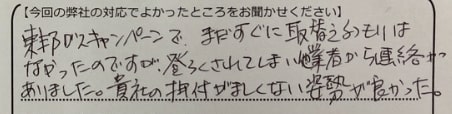 【今回の弊社の対応でよかったところをお聞かせください】
東邦ガスキャンペーンで、まだすぐに取替えるつもりは
なかったのですが、登ろくされてしまい業者から連絡が
ありました。貴社の押付がましくない姿勢が良かった。